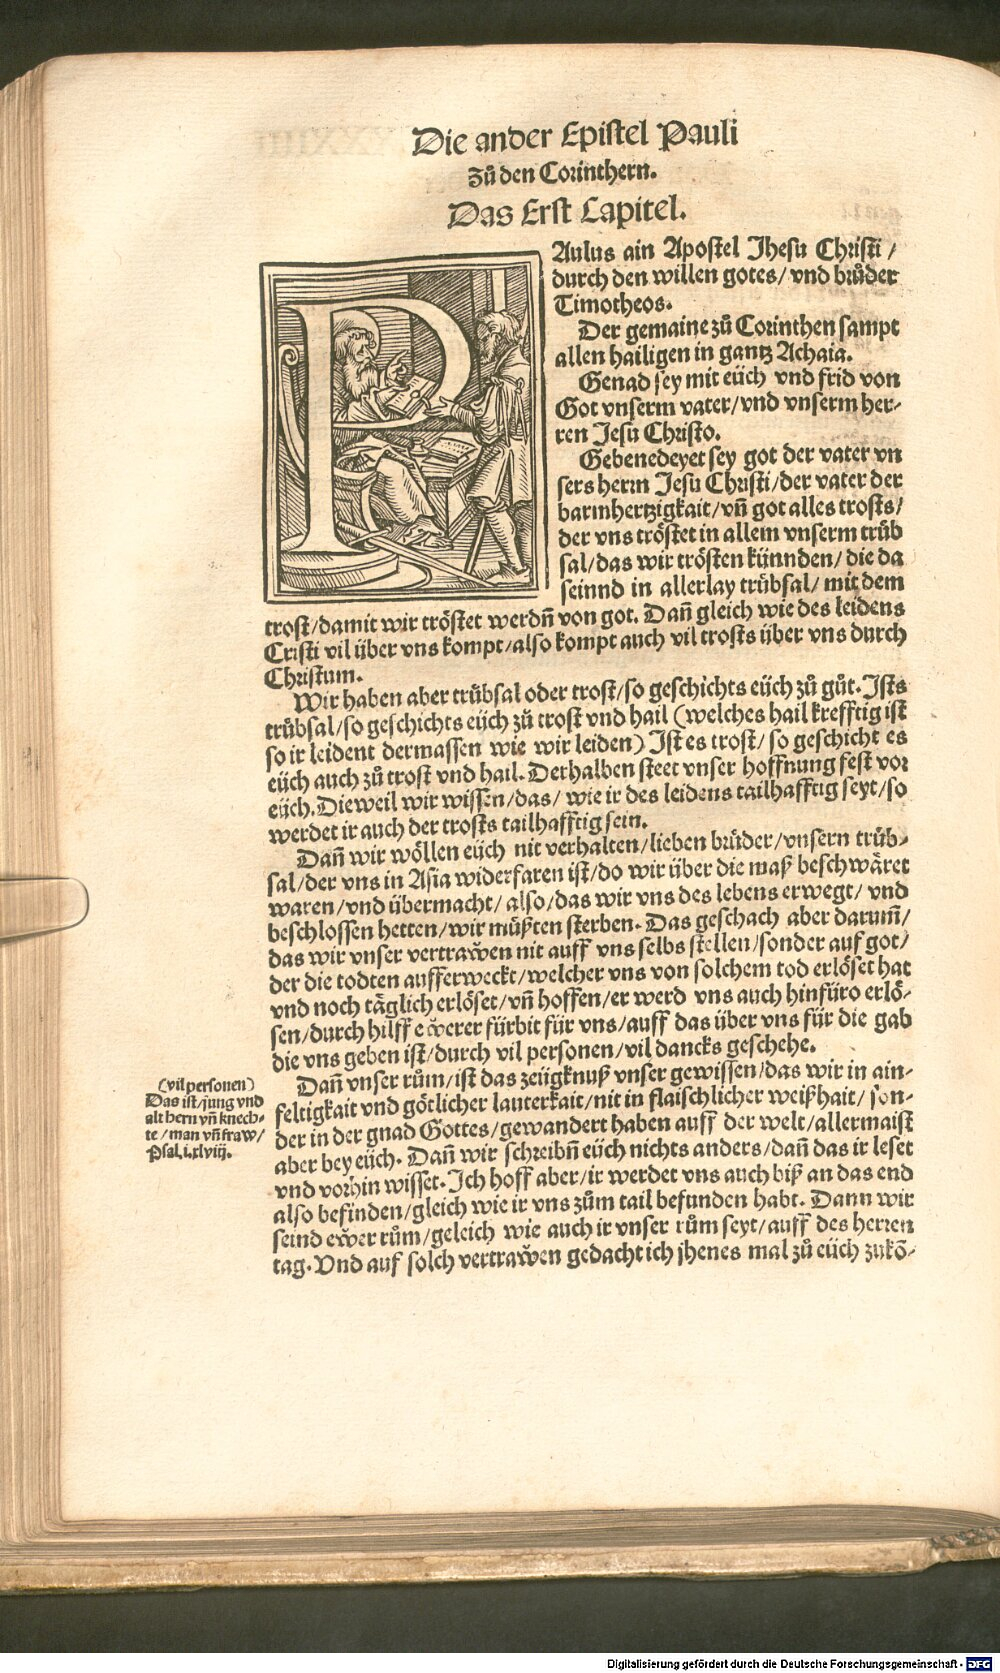 Die ander Epistel Pauli
Zů den Corinthern.
Das Erst Capitel.
PAulus ain Apostel Jhesu Christi /
durch den willen gotes / vnd brůder
Timotheos.
Der gemaine zů Corinthen sampt
allen hailigen in gantz Achaia.
Genad sey mit eüch vnd frid von
Got vnserm vater / vnd vnserm her-
ren Jesu Christo.
Gebenedeyet sey got der vater vn
sers herrn Jesu Christi / der vater der
barmhertzigkait / vñ got alles trosts /
der vns tröstet in allem vnserm trüb
sal / das wir trösten künnden / die da
seinnd in allerlay trübsal / mit dem
trost / damit wir tröstet werdñ von got. Dañ gleich wie des leidens
Cristi vil über vns kompt / also kompt auch vil trosts über vns durch
Christum.
Wir haben aber trübsal oder trost / so geschichts eüch zů gůt. Ists
trübsal / so geschichts eüch zů trost vnd hail (welches hail krefftig ist
so ir leident dermassen wie wir leiden) Ist es trost / so geschicht es
eüch auch zů trost vnd hail. Derhalben steet vnser hoffnung fest vor
eüch. Dieweil wir wissen / das / wie ir des leidens tailhafftig seyt / so
werdet ir auch der trosts tailhafftig sein.
Dañ wir wöllen eüch nit verhalten / lieben brüder / vnsern trüb-
sal / der vns in Asia widerfaren ist / do wir über die maß beschwäret
waren / vnd übermacht / also / das wir vns des lebens erwegt / vnd
beschlossen hetten / wir müßten sterben. Das geschach aber darum̃ /
das wir vnser vertrawen nit auff vns selbs stellen / sonder auf got /
der die todten aufferweckt / welcher vns von solchem tod erlöset hat
vnd noch täglich erlöset / vñ hoffen / er werd vns auch hinfüro erlö-
sen / durch hilff ewerer fürbit für vns / auff das über vns für die gab
die vns geben ist / durch vil personen / vil dancks geschehe.
Dañ vnser rům / ist das zeügknuß vnser gewissen / das wir in ain-
feltigkait vnd götlicher lauterkait / nit in flaischlicher weißhait / son-
der in der gnad Gottes / gewandert haben auff der welt / allermaist
aber bey eüch. Dañ wir schreibñ eüch nichts anders / dañ das ir leset
vnd vorhin wisset. Ich hoff aber / ir werdet vns auch biß an das end
also befinden / gleich wie ir vns zům tail befunden habt. Dann wir
seind ewer rům / geleich wie auch ir vnser rům seyt / auff des herren
tag. Vnd auf solch vertrawen gedacht ich jhenes mal zů eüch zukõ-
(vil personen)
Das ist / jung vnd
alt hern vñ knech-
te / man vñ fraw /
Psal. i.xlviij.
Digitalisierung gefördert durch die Deutsche Forschungsgemeinschaft - DFG